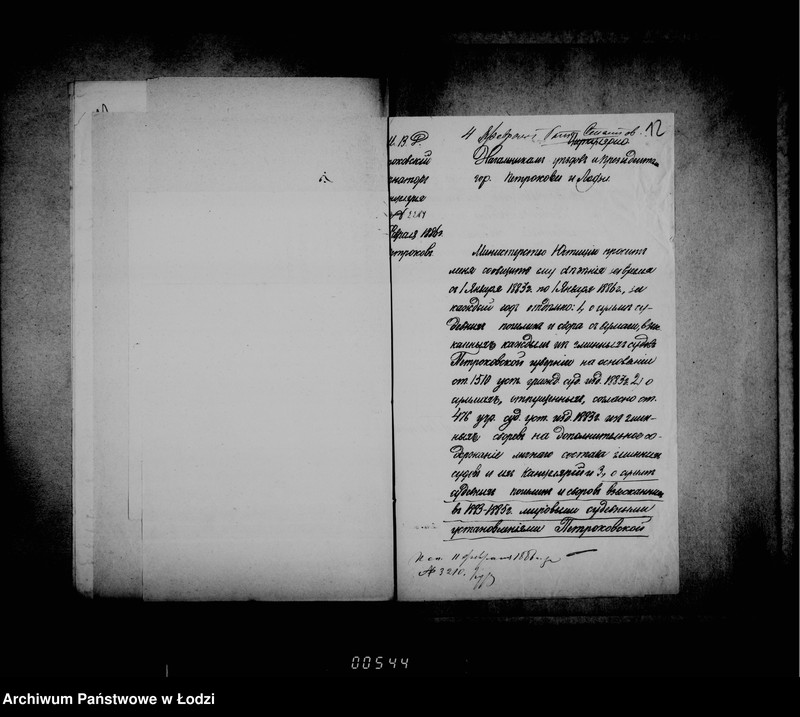 12
4 Февраля
Начальникам уездов и Президентам
гор. Петрокова и Лодзи
И. В. Д.
№ 2284
Февраля 1886 г.
Петроков
Министерство Юстиции просит
меня сообщить ему сведения за время
с 1 Января 1883 г. по 1 Января 1886 г., за
каждый год отдельно: 1, о сумме су-
дебных пошлин и сбора с бумаги, взыс-
канных каждым из гминных судов
Петроковской губернии на основании
ст 1510 уст. гражд. суд. изд. 1883 г. 2, о
суммах, отпущенных, согласно ст.
476 учр. суд. уст. изд. 1883 г. из гмин-
ных сборов на дополнительное со-
держание личного состава гминных
судов и их Канцелярий и 3, о сумме
судебных пошлин и сборов взысканных
в 1883-1885 г. мировыми судебными
установлениями Петроковской
11 февраля 1886 г.
№ 3210.
00544
Archiwum Państwowe w Łodzi